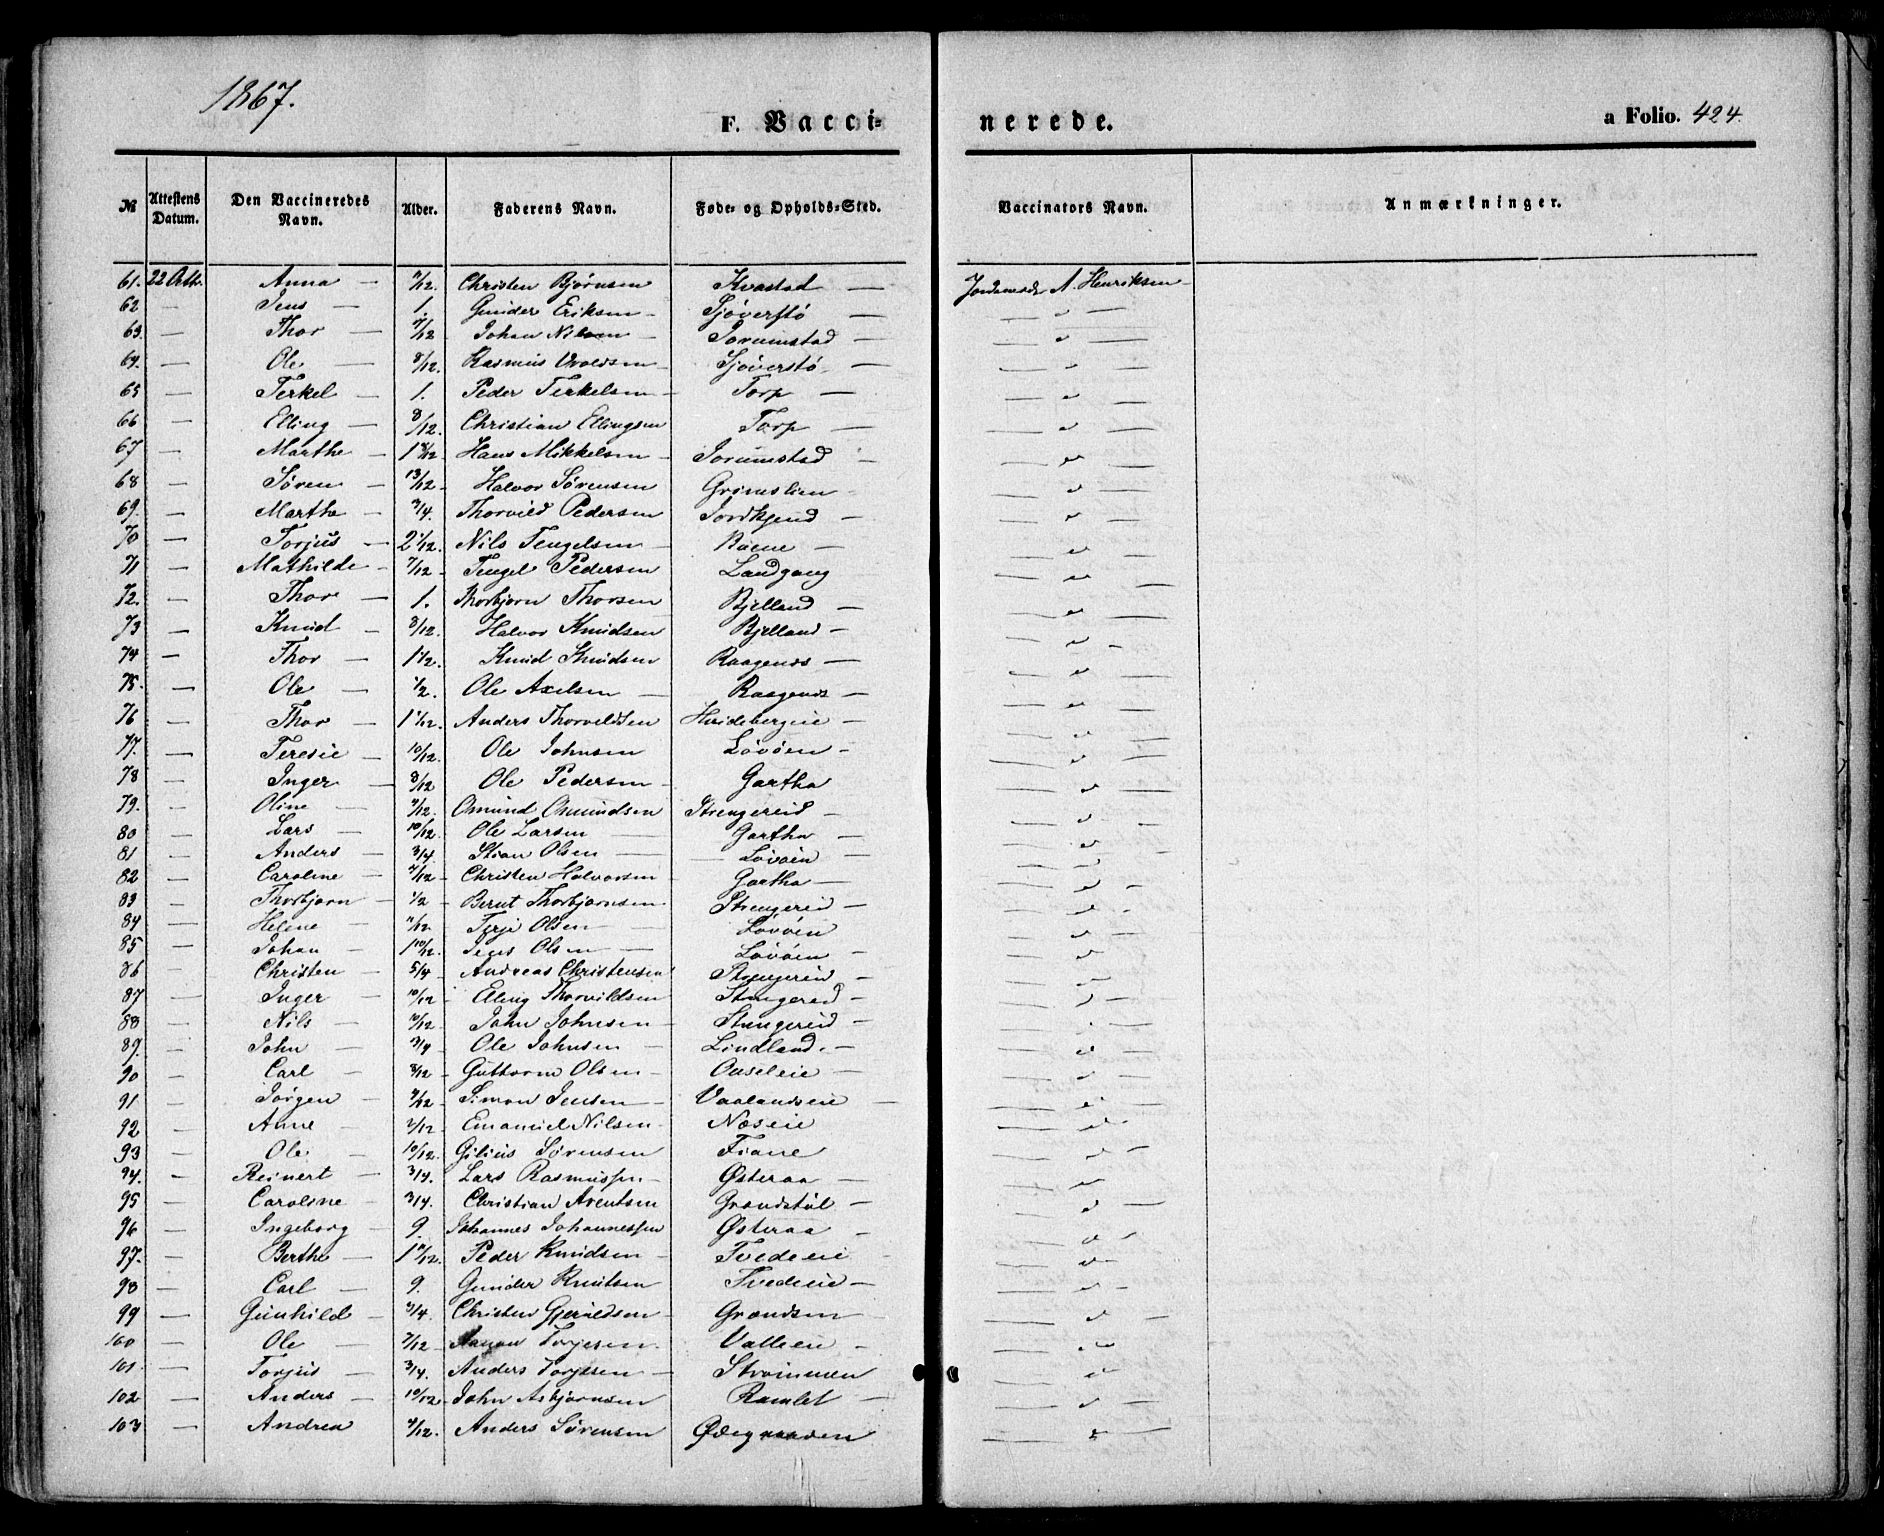 1867.
F. Vacci-
nerede.
a Folio. 424.
№ | Attestens Datum. | Den Vaccineredes Navn. | Alder. | Faderens Navn. | Føde- og Opholds-Sted. | Vaccinators Navn. | Anmærkninger.
61. 22 Octb. Anna — 7/12. Christen Bjørnsen Kvastad — Jordemoder A. Henriksen
62 — Jens — 1. Gunder Eriksen — Sjøverstø —
63. — Thor — 7/12 Johan Nilsen — Jorumstad —
64. — Ole — 8/12. Rasmus — Sjøverstø —
65 — Terkel — 1. Peder Terkelsen — Torp —
66 — Elling — 8/12. Christian Ellingsen Torp —
67 — Marthe — 1 8/12 Hans Mikkelsen — Jorumstad —
68 — Søren — 13/12 — Halvor Sørensen Grimslien —
69. — Marthe — 3/4. Thorvild Pedersen Jordkjend —
70 — Torjus — 2 1/12. Nils Tengelsen — —
71 — Mathilde — 7/12 — Tengel Pedersen Landgang
72. — Thor — 1. Thorbjørn Thorsen Bjelland —
73 — Knud — 8/12. Halvor Knudsen Bjelland —
74 — Thor — 1 1/2. Knud Knudsen Raagenes —
75. — Ole — 1/2. Ole Axelsen — Raagenes —
76 — Thor — 1 1/12. Anders Thorvildsen —
77. — Teresie — 10/12. Ole Johnsen Løvøen —
78 — Inger — 8/12 Ole Pedersen Gartha
79. — Oline — 4/12. Omund Omundsen Strengereid —
80 — Lars — 10/12. Ole Larsen — Gartha —
81 — Anders — 3/4. Stian Olsen — Løvøen —
82 — Caroline — 7/12 — Christen Halvorsen — Gartha —
83 — Thorbjørn — 1/2 — Bernt Thorbjørnsen. Strengereid —
84 — Helene — 11/12. Terje Olsen — Løvøen
85 — Johan — 1 10/12. Jens Olsen — Løvøen —
86 — Christen — 5/4 — Andreas Christensen Strengereid —
87 — Inger — 10/12 — Elling Thorvildsen Strengereid —
88 — Nils — 10/12. John Johnsen — Strengereid —
89. — John — 3/4 Ole Johnsen — Lindland. —
90 — Carl — 8/12 — Guttorm Olsen — Ouseleie —
91 — Jørgen — 4/12 — Simon Jensen — Vaalandseie —
92 — Anne — 2/12 — Emanuel Nilsen — Næseie —
93 — Ole — 10/12. Gilius Sørensen Fiane —
94. — Reinert — 3/4. Lars Rasmussen — Østeraa —
95 — Caroline — 3/4. Christian Arentsen Grændstøl —
96 — Ingeborg — 9. Johannes Johannessen Østeraa —
97. — Berthe — 1 11/12. Peder Knudsen — Tvedeeie —
98 — Carl — 9. Gunder Knutsen Tvedeeie —
99 — Gunhild — 3/4. Christen Gjeruldsen — Grændsen —
100 — Ole — 7/12 — Aanon Torjesen. Valleeie —
101. — Torjus — 3/4. Anders Torjesen — Strømmen
102 — Anders — 10/12 — John Asbjørnsen Ramlet —
103 — Andrea 4/12. Anders Sørensen Ødegaarden